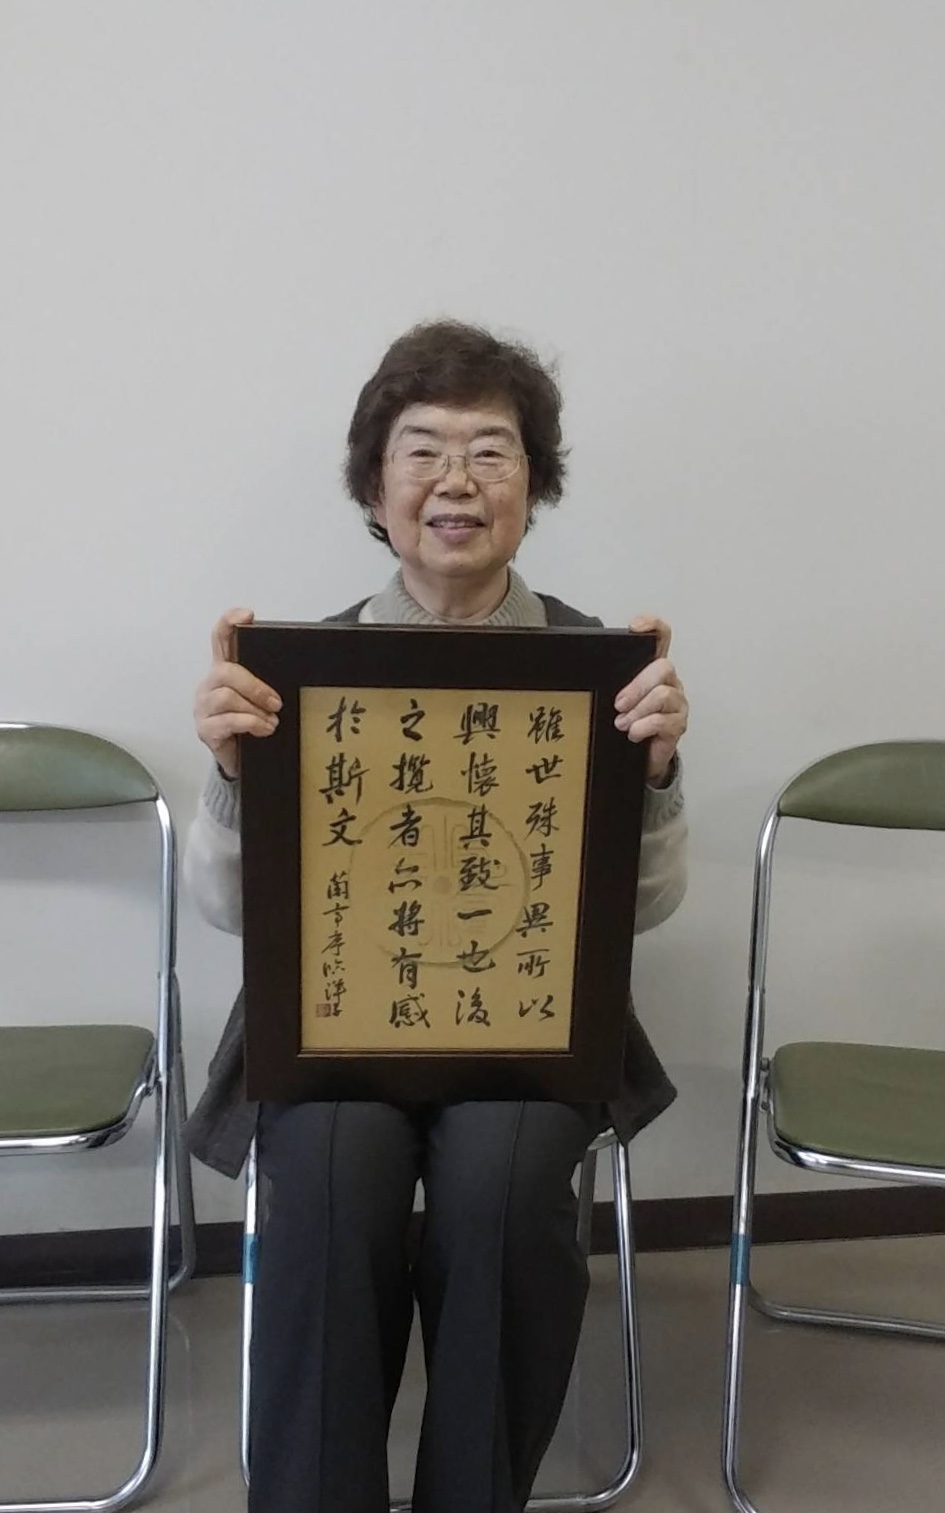 雖世殊事異所以
興懷其致一也後
之攬者亦將有感
於斯文
蘭亭序臨 洋子